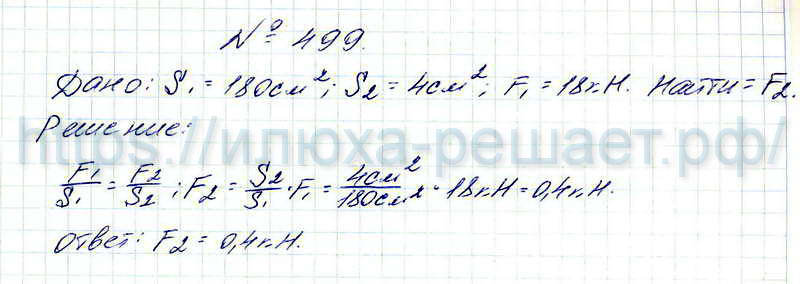 № 499.
Дано: S₁ = 180см²; S₂ = 4см²; F₁ = 18кН. Найти = F₂.
Решение:
https://илюха-решает.рф/
F₁/S₁ = F₂/S₂; F₂ = S₂/S₁ · F₁ = 4см²/180см² · 18кН = 0,4кН.
Ответ: F₂ = 0,4кН.